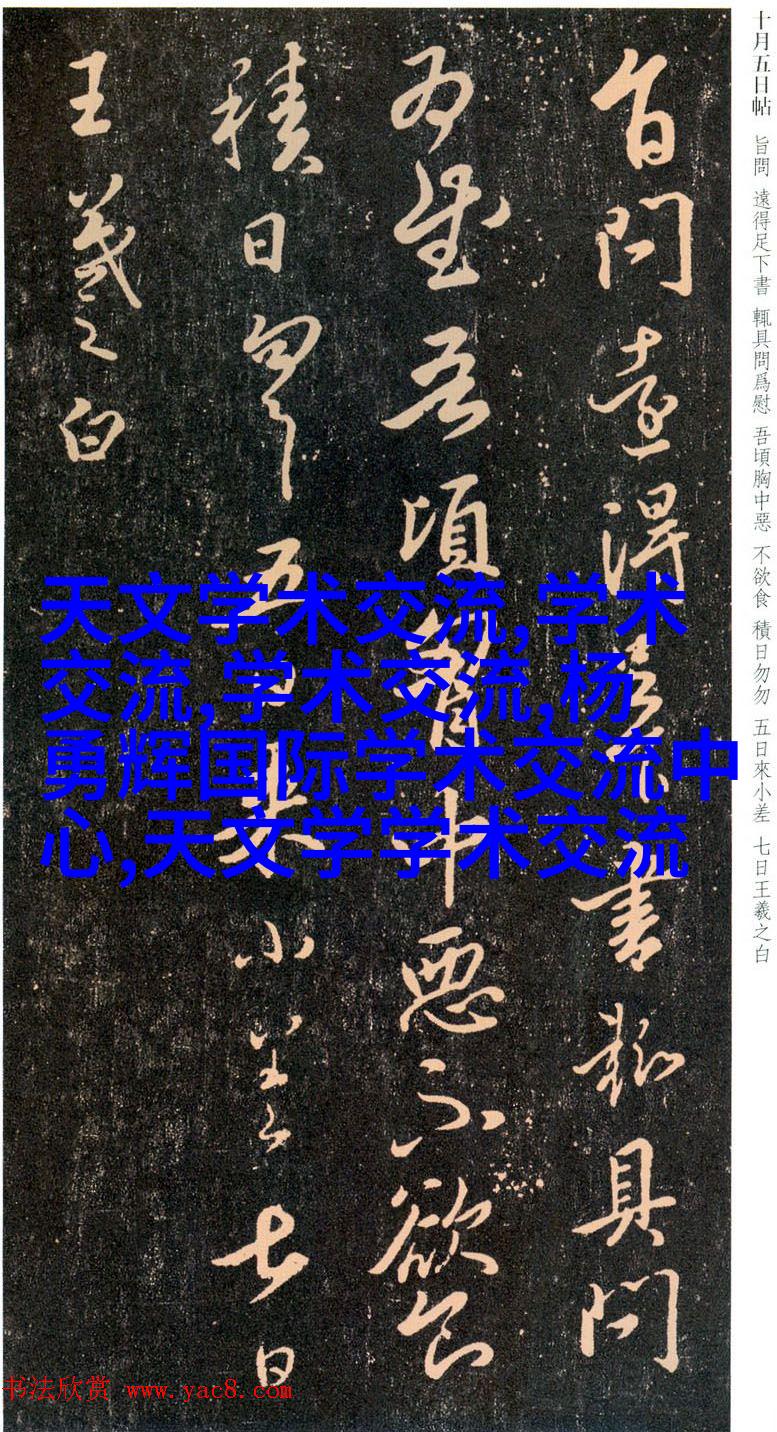 十月五日帖 旨問 遠得足下書 輒具問爲慰 吾頃胸中惡 不欲食 積日勿勿 五日來小差 七日王羲之白
旨問遠得足下書輒具問
為慰吾頃胷中惡不欲食
積日勿勿五日來小差七日
王羲之白
天文学术交流,学术
交流,学术交流,杨
勇辉国际学术交流中
心,天文学学术交流
书法欣赏 www.yac8.com